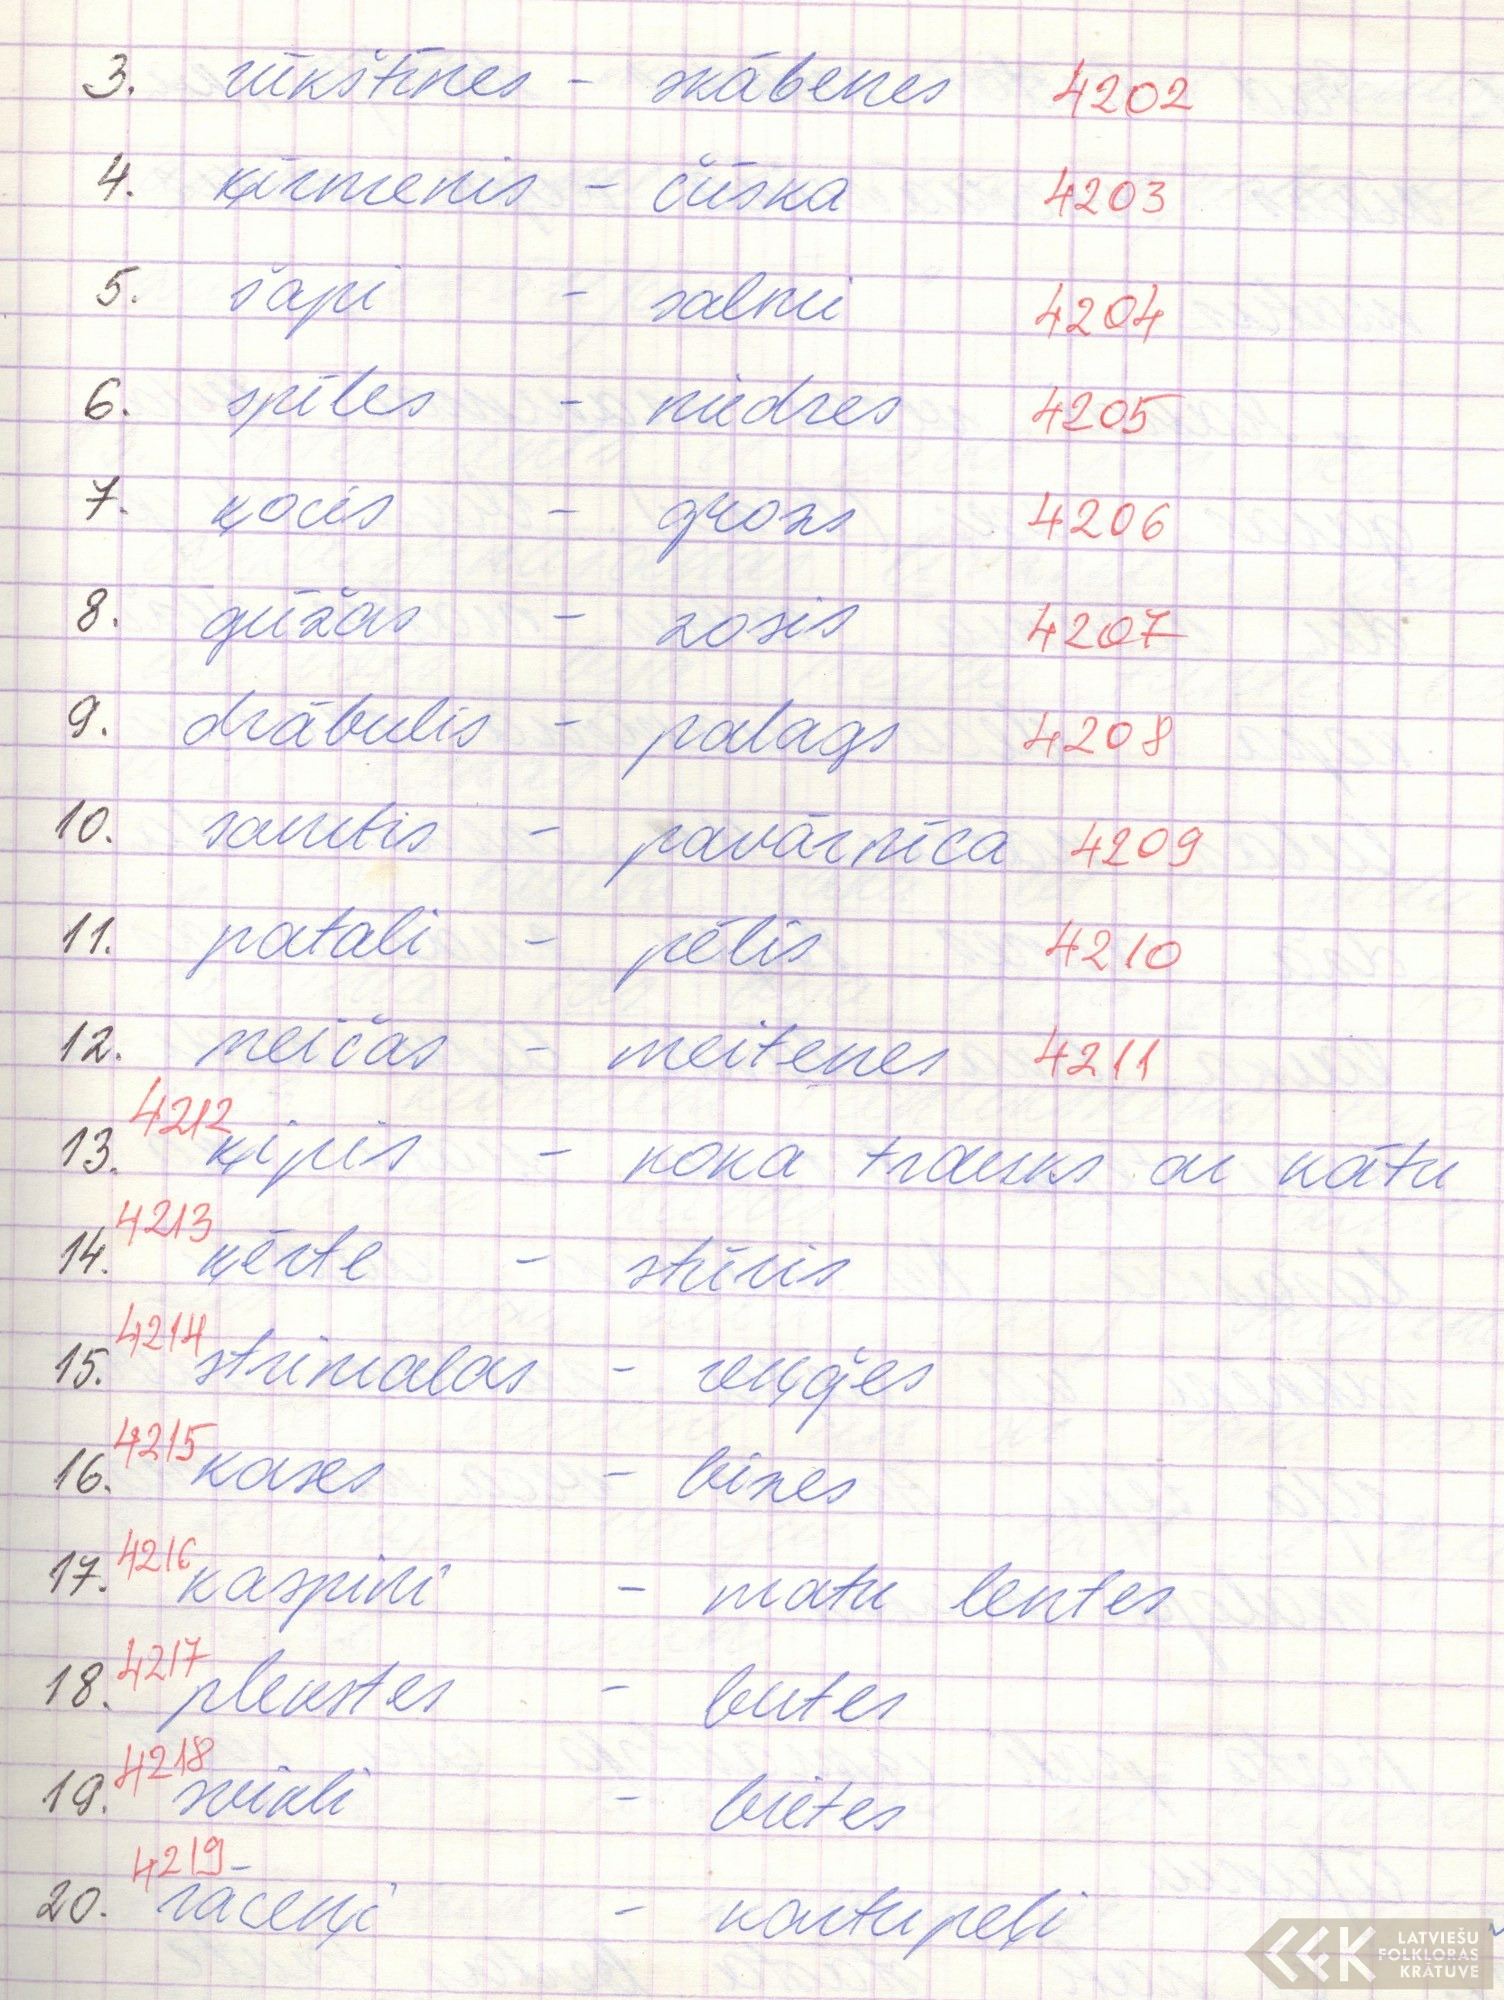 3. rūkštīnes - skābenes 4202
4. ķirmenis - čūska 4203
5. šapi - salmi 4204
6. spīles - niedres 4205
7. ķocis - grozs 4206
8. gūžas - zosis 4207
9. drābulis - palags 4208
10. samtis - pavārnīca 4209
11. patali - pēlis 4210
12. meičas - meiteņes 4211
13. 4212 ķipis - koka trauks ar kātu
14. 4213 ķērte - stūris
15. 4214 strimalas - reņģes
16. 4215 kases - bizes
17. 4216 kaspini - matu lentes
18. 4217 plekstes - butes
19. 4218 svikli - bietes
20. 4219 rāceņi - kartupeļi
LATVIEŠU
FOLKLORAS
KRĀTUVE